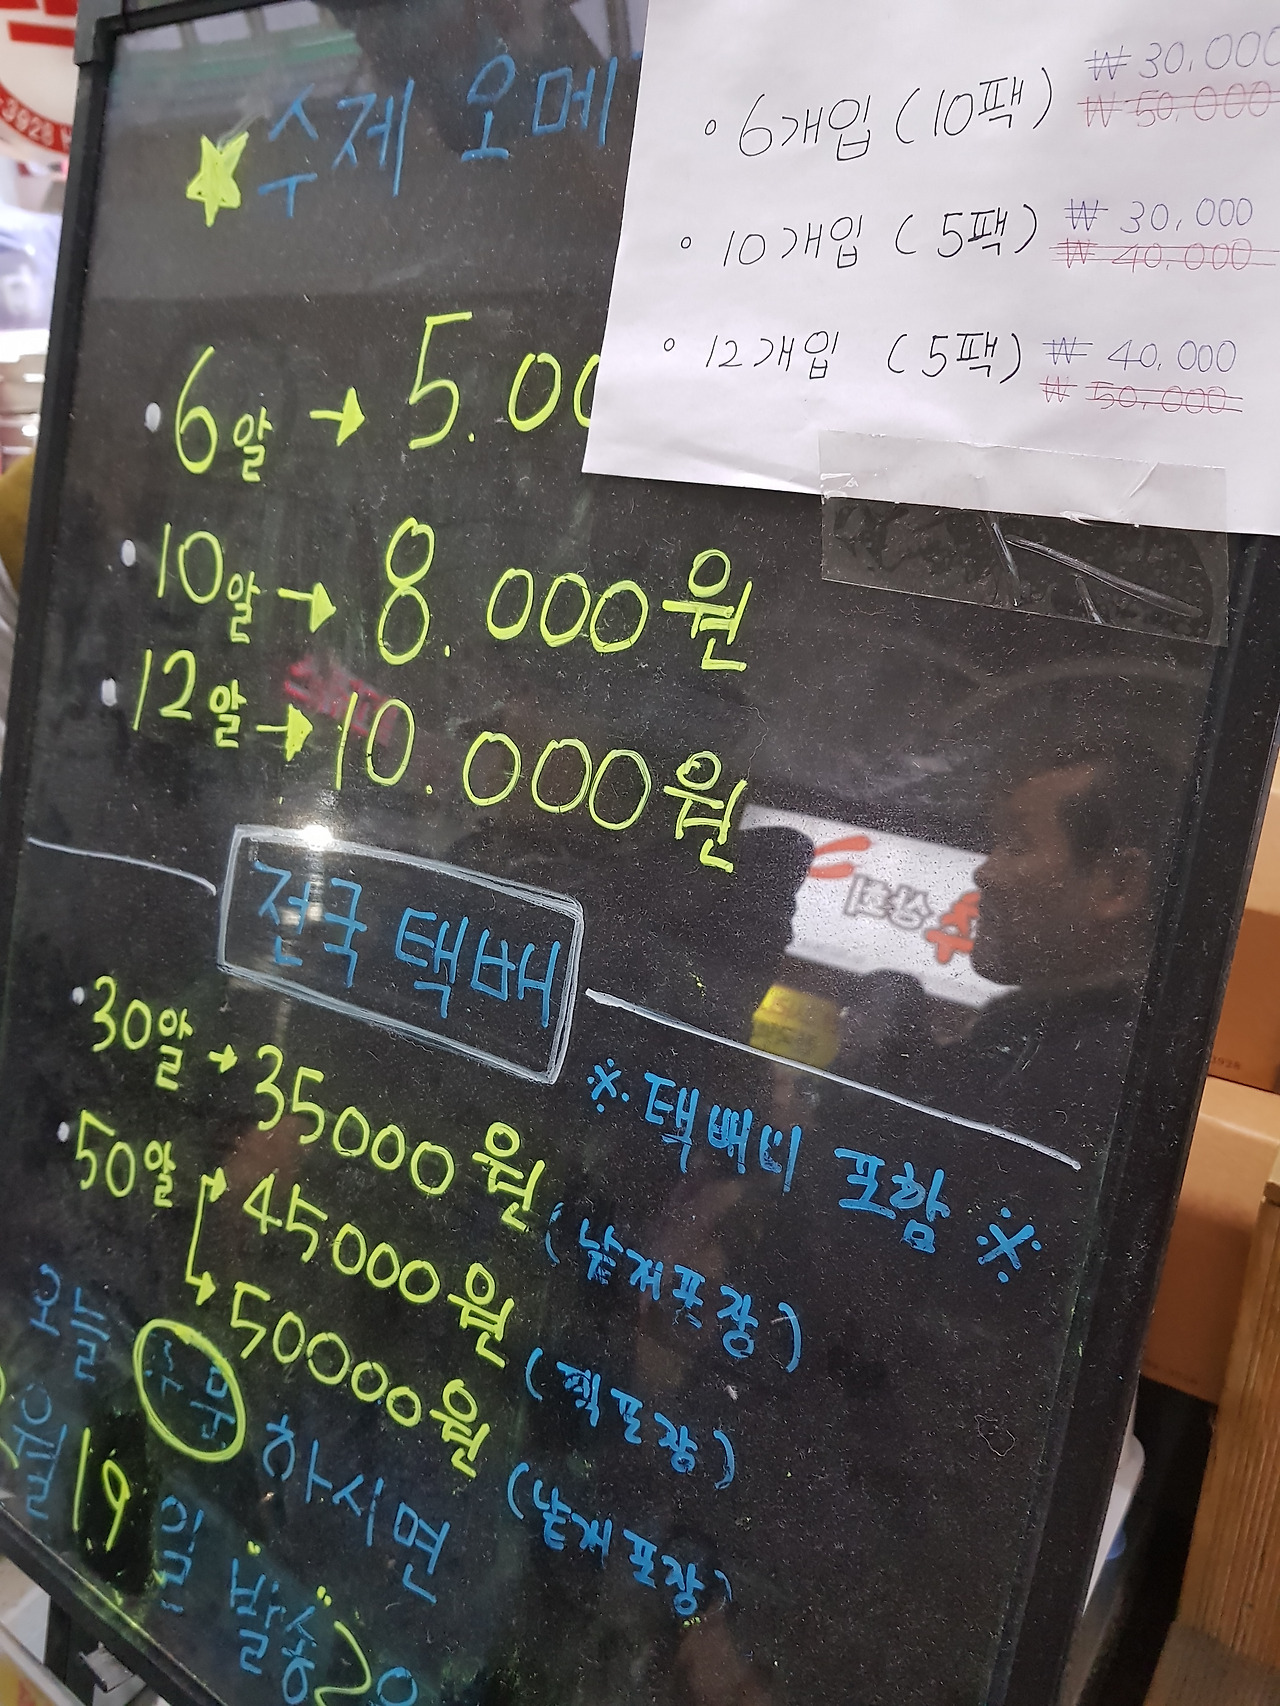 수제 오메
6알 → 5.00
10알 → 8.000원
12알 → 10.000원
• 6개입 (10팩) ₩ 30,000
₩ 50,000
• 10개입 (5팩) ₩ 30,000
₩ 40,000
• 12개입 (5팩) ₩ 40,000
₩ 50,000
전국 택배
※ 택배비 포함 ※
• 30알 → 35000원 (낱개포장)
• 50알 → 45000원 (팩포장)
→ 50000원 (낱개포장)
오늘 주문 하시면
요일 19일 발송 20